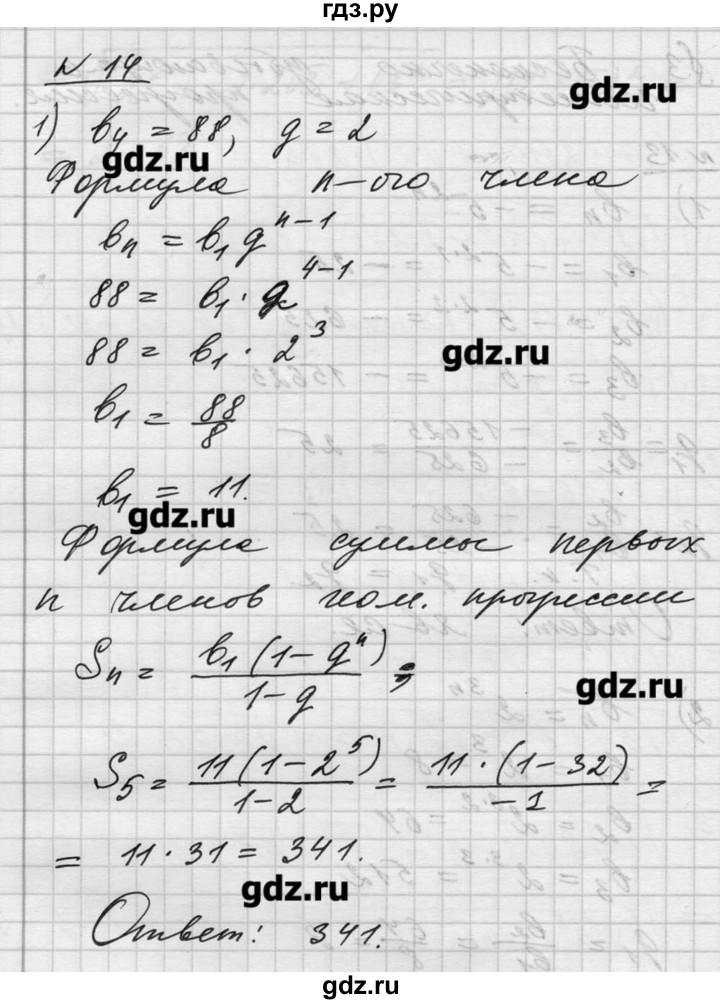 гдз.ру
№ 14
gdz.ru
1) b₄ = 88, q = 2
gdz.ru
Формула n-ого члена
bₙ = b₁ qⁿ⁻¹
88 = b₁ · q⁴⁻¹
88 = b₁ · 2³
gdz.ru
b₁ = 88/8
b₁ = 11.
gdz.ru
Формула суммы первых
n членов геом. прогрессии
Sₙ = b₁(1-qⁿ)/1-q ;
gdz.ru
S₅ = 11(1-2⁵)/1-2 = 11·(1-32)/-1 =
= 11·31 = 341.
gdz.ru
Ответ: 341.
gdz.ru